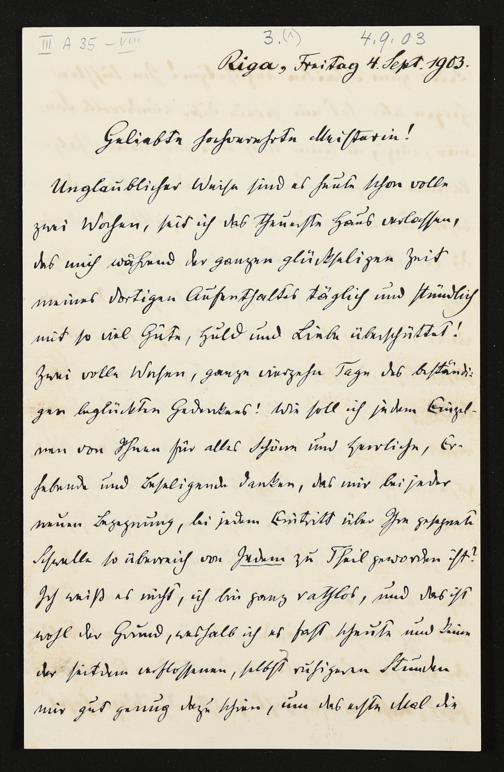 III A 35 - VIII 3.(1) 4.9.03
Riga, Freitag 4. Sept. 1903.
Geliebte hochverehrte Meisterin!
Unglaublicher Weise sind es heute schon volle
zwei Wochen, seit ich das theuerste Haus verlassen,
das mich während der ganzen glückseligen Zeit
meines dortigen Aufenthaltes täglich und stündlich
mit so viel Güte, Huld und Liebe überschüttet!
Zwei volle Wochen, ganze vierzehn Tage des beständi-
gen beglückten Gedenkens! Wie soll ich jedem Einzel-
nen von Ihnen für alles Schöne und Herrliche, Er-
hebende und Beseligende danken, das mir bei jeder
neuen Begegnung, bei jedem Eintritt über Ihre gesegnete
Schwelle so überreich von Jedem zu Theil geworden ist?
Ich weiß es nicht, ich bin ganz rathlos, und das ist
wohl der Grund, weshalb ich es fast scheute und keine
der seitdem verflossenen, selbst ruhigeren Stunden
mir gut genug dazu schien, um das erste Mal die